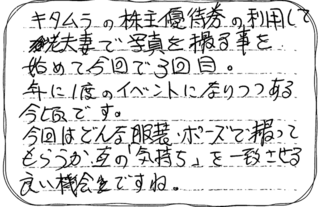 キタムラの株主優待券の利用して
老夫妻で写真を撮る事を
始めて今回で3回目。
年に1度のイベントになりつつある
今頃です。
今回はどんな服装・ポーズで撮って
もらうか互の「気持ち」を一致させる
良い機会ですね。